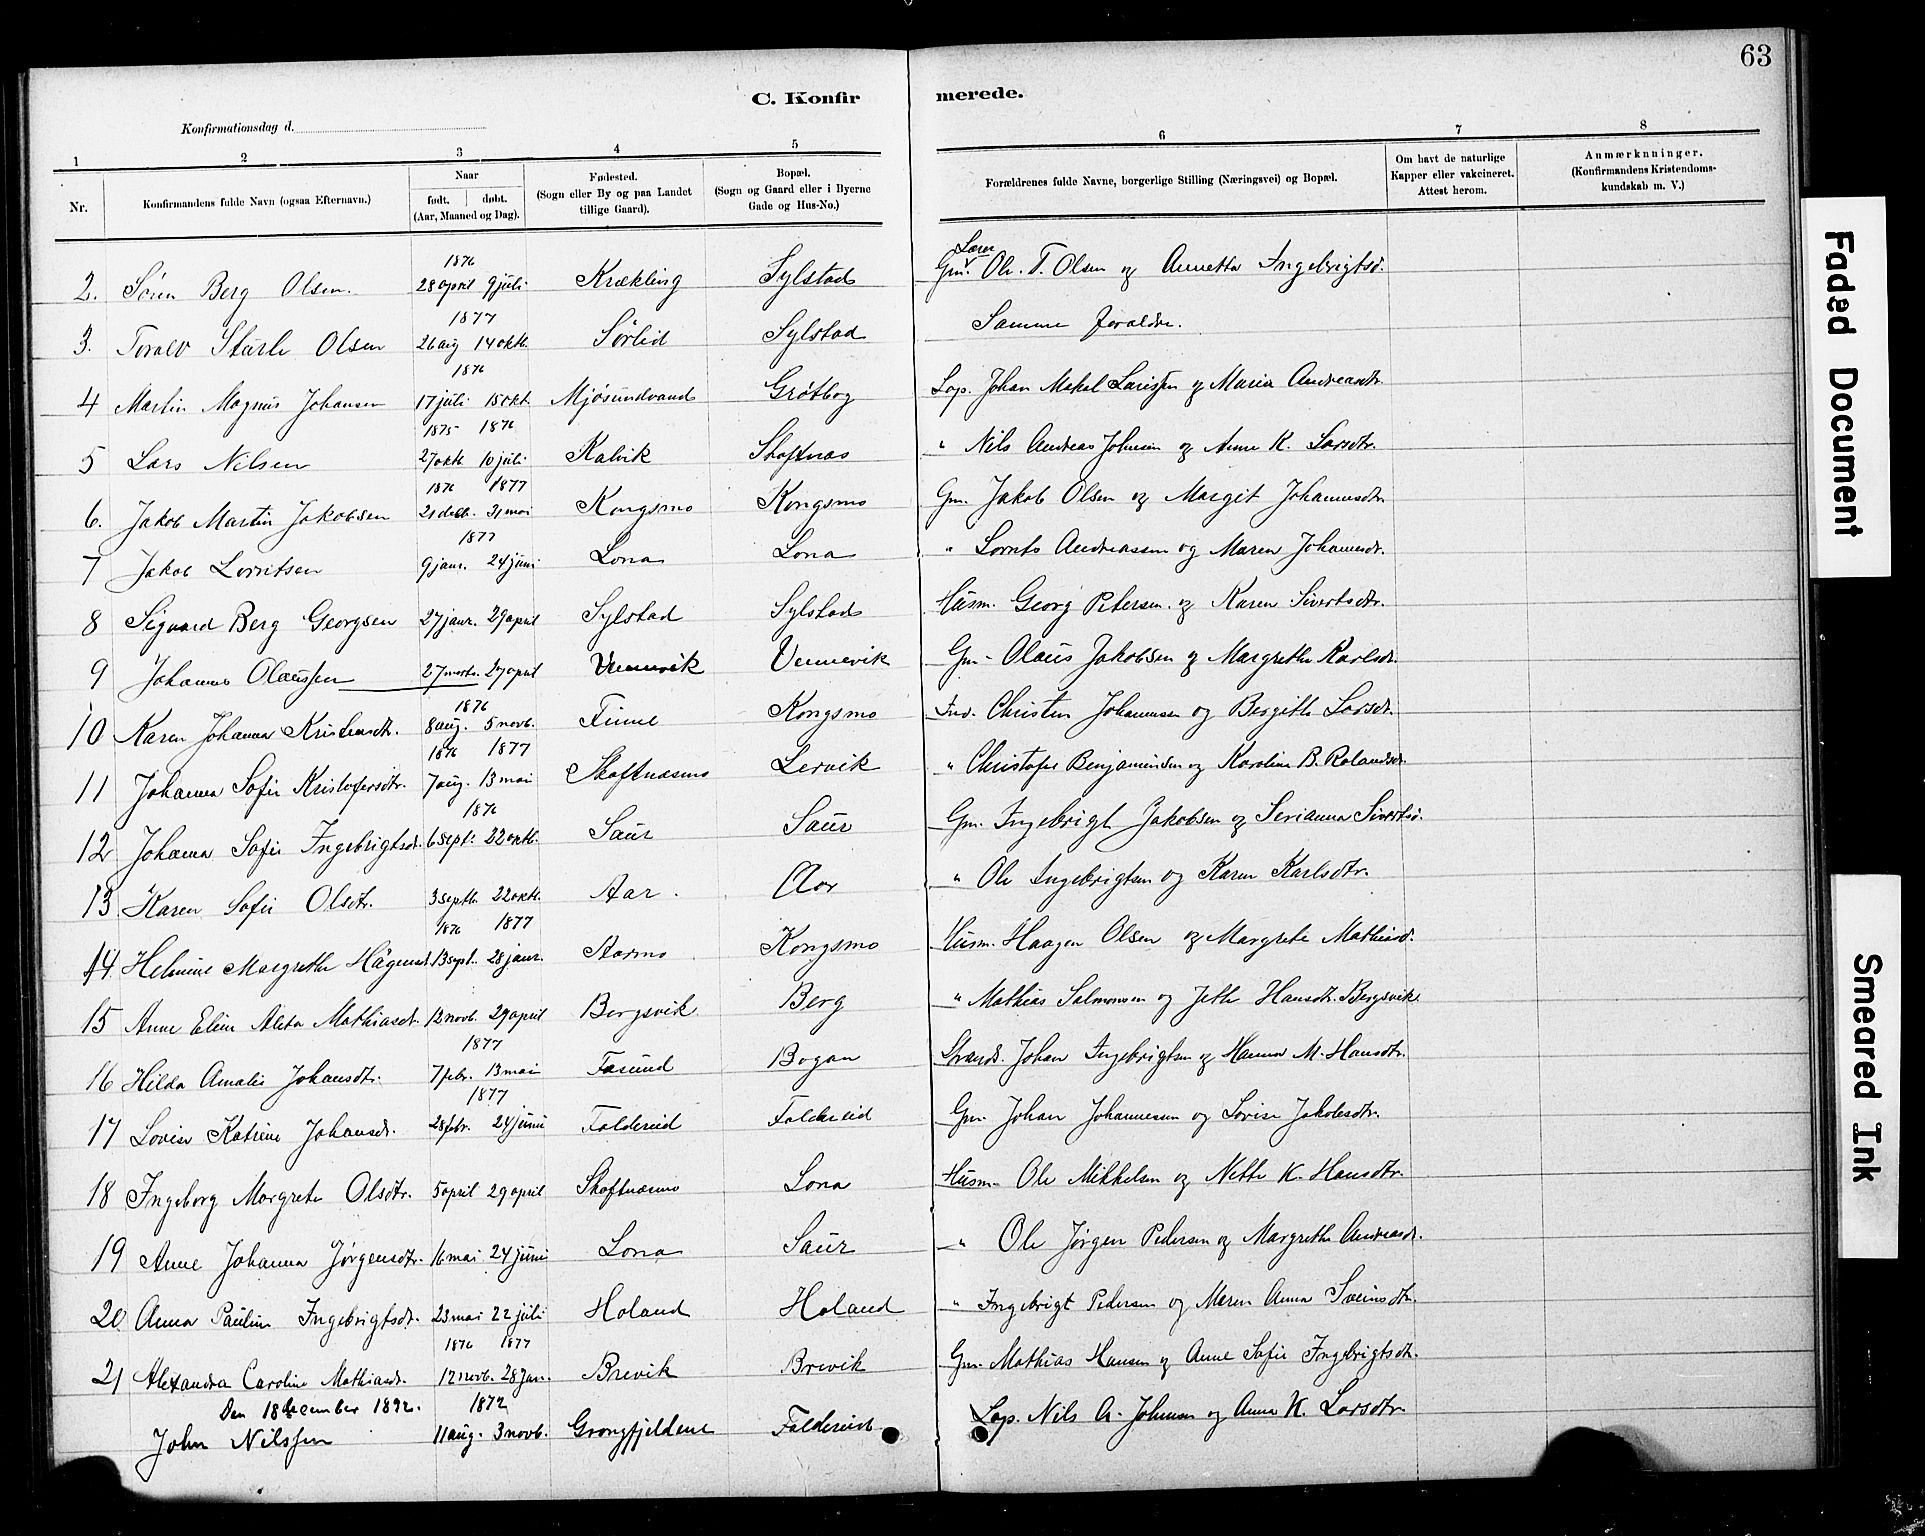 63
C. Konfirmerede.
Konfirmationsdag d.
1 2 3 4 5 6 7 8
Nr. Konfirmandens fulde Navn (ogsaa Efternavn.) Naar født. døbt. (Aar, Maaned og Dag). Fødested. (Sogn eller By og paa Landet tillige Gaard). Bopæl. (Sogn og Gaard eller i Byerne Gade og Hus-No.) Forældrenes fulde Navne, borgerlige Stilling (Næringsvei) og Bopæl. Om havt de naturlige Kapper eller vakcineret. Attest herom. Anmærknninger. (Konfirmandens Kristendomskundskab m. V.)
1876 Lærer
2. Søren Berg Olsen. 28 april 9 juli Krækling Sylstad Gm. Ole T. Olsen og Annetta Ingebrigtsd.
1877
3. Toralv Sturle Olsen 26 aug 14 oktb. Sørlid Sylstad Samme foreldre.
1876
4 Martin Magnus Johansen 17 juli 15 okt. Mjøsundvand Grøtbog Lap. Johan Mekal Larissen og Maria Andreasdtr.
1875 1876
5 Lars Nilsen 27 oktb. 10 juli Kalvik Skoftnæs " Nils Andreas Johnsen og Anne K. Larsdtr.
1876 1877
6. Jakob Martin Jakobsen 21 decb. 31 mai Kongsmo Kongsmo Gm. Jakob Olsen og Margit Johannesdtr.
1877
7 Jakob Lorntsen 9 janr. 24 juni Lona Lona " Lornts Andreassen og Maren Johannesdr.
8 Sigvard Berg Georgsen 27 janr. 29 april Sylstad Sylstad Husm. Georg Petersen og Karen Sivertsdtr.
9 Johannes Olaussen 27 marts. 29 april Vennevik Vennevik Gm. Olaus Jakobsen og Margrethe Karlsdr.
1876
10 Karen Johanna Kristensdtr. 8 aug. 5 novb. Finne Kongsmo Ind. Christen Johannessen og Bergithe Larsdr.
1876 1877
11 Johanna Sofie Kristofersdtr. 7 aug. 13 mai Skoftnæsmo Lervik " Christofer Benjaminsen og Karoline B. Rolandsdr.
1876
12 Johanna Sofie Ingebrigtsdr. 6 sept. 22 oktb. Saur Saur Gm. Ingebrigt Jakobsen og Serianna Sivertsd.
13 Karen Sofie Olsdtr. 3 septb. 22 oktb. Aar. Aar " Ole Ingebrigtsen og Karen Karlsdtr.
1876 1877
14 Helmine Margrethe Hågensd. 13 sept. 28 janr. Aarmo Kongsmo Husm. Haagen Olsen og Margrete Mathiasd.
15 Anne Eline Aleta Mathiasdt. 12 novb. 29 april Bergsvik Berg " Mathias Salmonsen og Jethe Hansdtr. Bergsvik
1877
16 Hilda Amalie Johansdtr. 7 febr. 13 mai Fasund Bogan Strands. Johan Ingebrigtsen og Hanna M. Hansdtr.
1877
17 Lovise Katrine Johansdr. 28 febr. 24 juni Foldereid Foldereid Gm. Johan Johannessen og Lovise Jakobsdtr.
18 Ingeborg Margrete Olsdtr. 5 april 29 april Skoftnæsmo Lona Husm. Ole Mikkelsen og Nette K. Hansdtr.
19 Anne Johanna Jørgensdtr. 16 mai 24 juni Lona Saur " Ole Jørgen Pedersen og Margrethe Andreasdr.
20 Anna Pauline Ingebrigtsdr. 23 mai 22 juli Holand Holand " Ingebrigt Pedersen og Maren Anna
1876 1877
21 Alexandra Caroline Mathiasdr. 12 novb. 28 jan. Brevik Brevik Gm. Mathias Hansen og Anne Sofie Ingebrigtsdtr.
Den 18 december 1892. 1872
John Nilssen 11 aug. 3 novb. Grongfjeldene Foldereid Lap. Nils A. Johnsen og Anna K. Larsdtr.
Faded Document
Smeared Ink